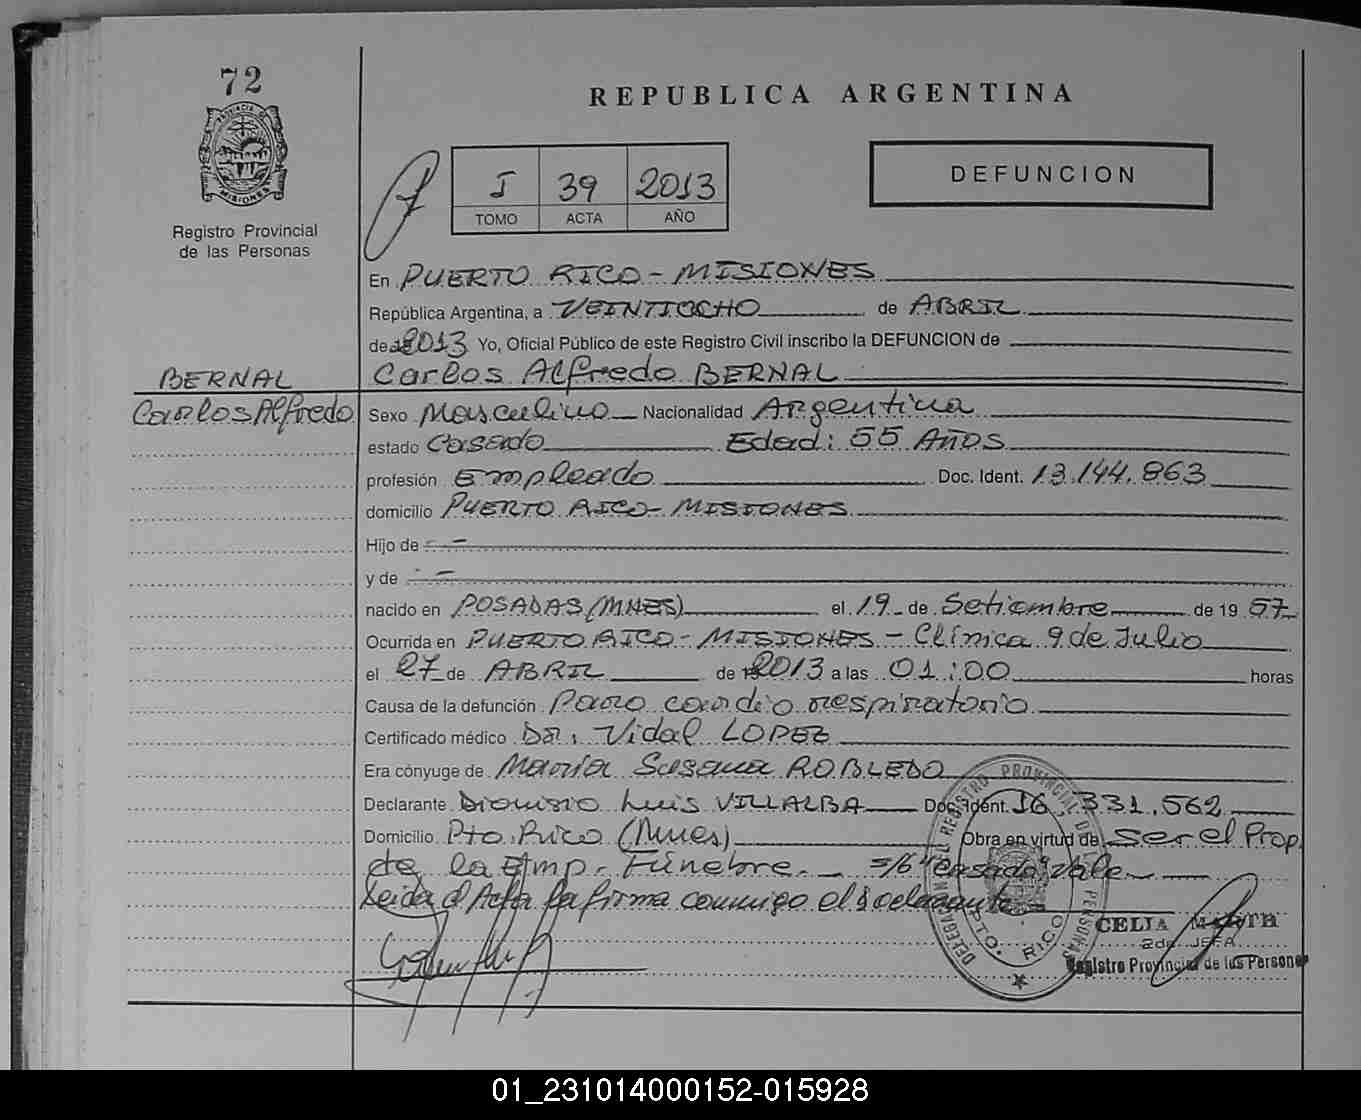 72
PROVINCIA DE MISIONES
Registro Provincial
de las Personas
REPUBLICA ARGENTINA
I 39 2013
TOMO ACTA AÑO
DEFUNCION
En PUERTO RICO - MISIONES
República Argentina, a VEINTIOCHO de ABRIL
de 2013 Yo, Oficial Público de este Registro Civil inscribo la DEFUNCION de
BERNAL Carlos Alfredo BERNAL
Carlos Alfredo Sexo Masculino Nacionalidad Argentina
estado Casado Edad: 55 AÑOS
profesión Empleado Doc. Ident. 13.144.863
domicilio PUERTO RICO - MISIONES
Hijo de - -
y de - -
nacido en POSADAS (MNES) el 19 de Setiembre de 19 57
Ocurrida en PUERTO RICO - MISIONES - Clínica 9 de Julio
el 27 de ABRIL de 2013 a las 01:00 horas
Causa de la defunción Paro cardio respiratorio
Certificado médico Dr. Vidal LOPEZ
Era cónyuge de Maria Susana ROBLEDO
Declarante Dionisio Luis VILLALBA Doc. Ident. 16.331.562
Domicilio Pto. Rico (Mnes) Obra en virtud de Ser el Prop.
de la Emp. Fúnebre. - s/b "casado" Vale -
Leida el Acta la firma conmigo el declarante -
DELEGACION REGISTRO PROVINCIAL DE PERSONAS
PTO. RICO
CELIA
2da. JEFA
Registro Provincial de las Personas
01_231014000152-015928